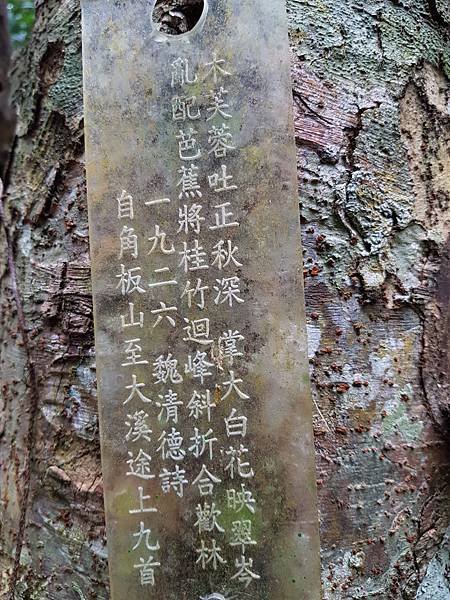 木芙蓉吐正秋深 掌大白花映翠岑
亂配芭蕉將桂竹迴峰斜折合歡林
一九二六 魏清德詩
自角板山至大溪途上九首